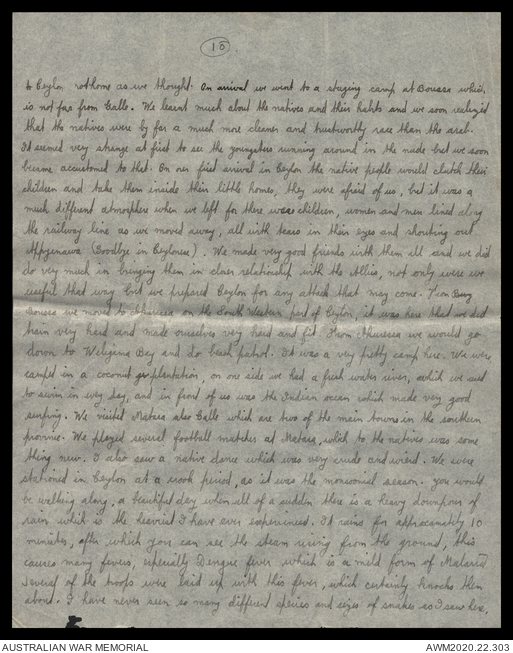 10
to Ceylon not home as we thought. On arrival we went to a staging camp at Boossa which
is not far from Galle. We learnt much about the natives and their habits and we soon realized
that the natives were by far a much more cleaner and trustworthy race than the arab.
It seemed very strange at first to see the youngsters running around in the nude but we soon
became accustomed to that. On our first arrival in Ceylon the native people would clutch their
children and take them inside their little homes, they were afraid of us, but it was a
much different atmosphere when we left for there were children, women and men lined along
the railway line as we moved away, all with tears in their eyes and shouting out
(Goodbye in Ceylonese). We made very good friends with them all and we did
do very much in bringing them in closer relationship with the Allies, not only were we
useful that way but we prepared Ceylon for any attack that may come. From
Boossa we moved to on the South Western part of Ceylon, it was here that we did
train very hard and made ourselves very hard and fit. From we would go
down to Weligama Bay and do beach patrol. It was a very pretty camp here. We were
camped in a coconut plantation, on one side we had a fresh water river, which we used
to swim in every day, and in front of us was the Indian ocean which made very good
surfing. We visited Matara also Galle which are two of the main towns in the southern
province. We played several football matches at Matara, which to the natives was some
thing new. I also saw a native dance which was very crude and wierd. We were
stationed in Ceylon at a crook period, as it was the monsoonial season. You would
be walking along, a beautiful day when all of a sudden there is a heavy downpour of
rain which is the heaviest I have ever experienced. It rains for approximately 10
minutes, after which you can see the steam rising from the ground, this
causes many fevers, especially Dengue fever which is a mild form of Malaria
several of the troops were laid up with this fever, which certainly knocks them
about. I have never seen so many different species and sizes of snakes as I saw here,
AUSTRALIAN WAR MEMORIAL
AWM2020.22.303